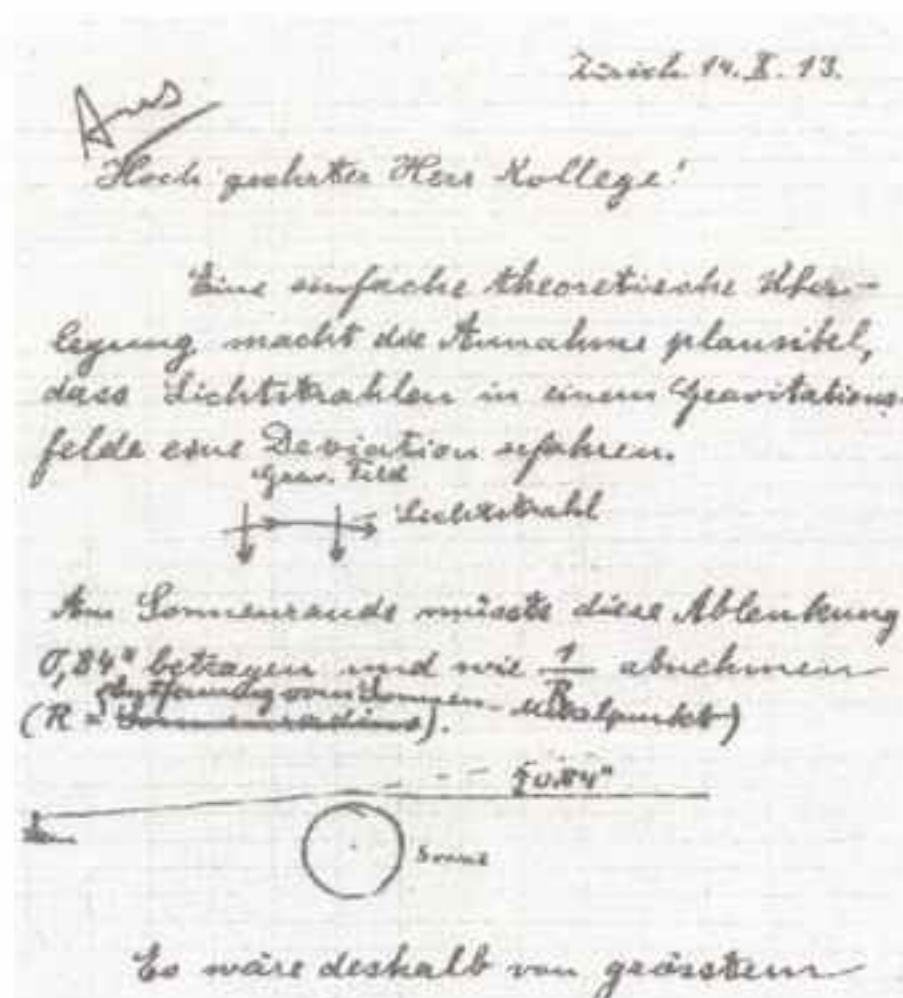 Zürich 14. X. 13.
Hoch geehrter Herr Kollege!
Eine einfache theoretische Über-
legung macht die Annahme plausibel,
dass Lichtstrahlen in einem Gravitations-
felde eine Deviation erfahren.
Grav. Feld
Lichtstrahl
Am Sonnenrande müsste diese Ablenkung
0,84" betragen und wie 1/R abnehmen
(R = Sonnenradius).
0.84"
Sonne
Es wäre deshalb von grösstem